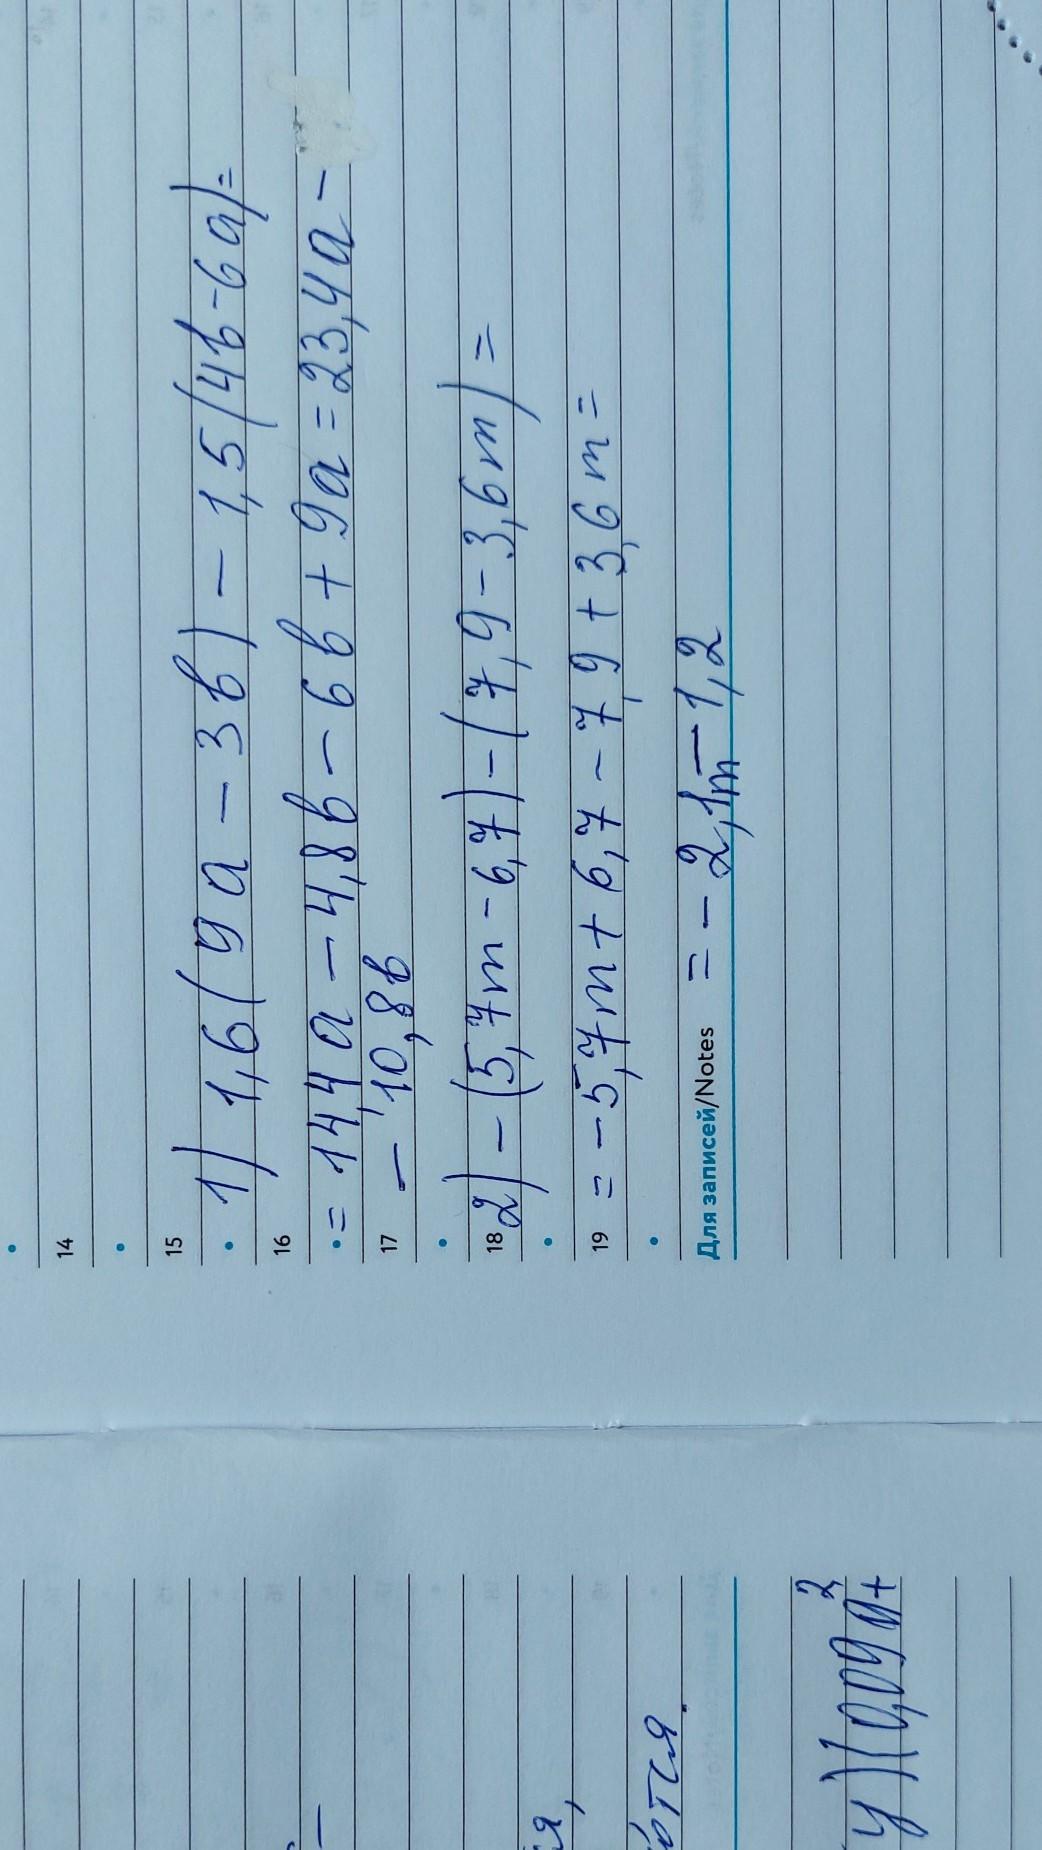 14
15
1) 1,6(9а - 3в) - 1,5(4в-6а)=
16
= 14,4а - 4,8в - 6в + 9а = 23,4а -
17
- 10,8в
18
2) - (5,7m - 6,7) - (7,9 - 3,6m) =
19
= - 5,7m + 6,7 - 7,9 + 3,6m =
Для записей/Notes
= - 2,1m - 1,2
ются.
у)(0,09м²+